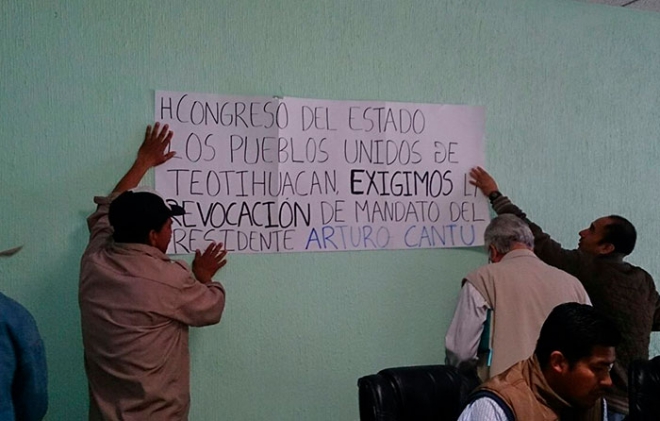 H CONGRESO DEL ESTADO
LOS PUEBLOS UNIDOS DE
TEOTIHUACAN, EXIGIMOS LA
REVOCACIÓN DE MANDATO DEL
PRESIDENTE ARTURO CANTU